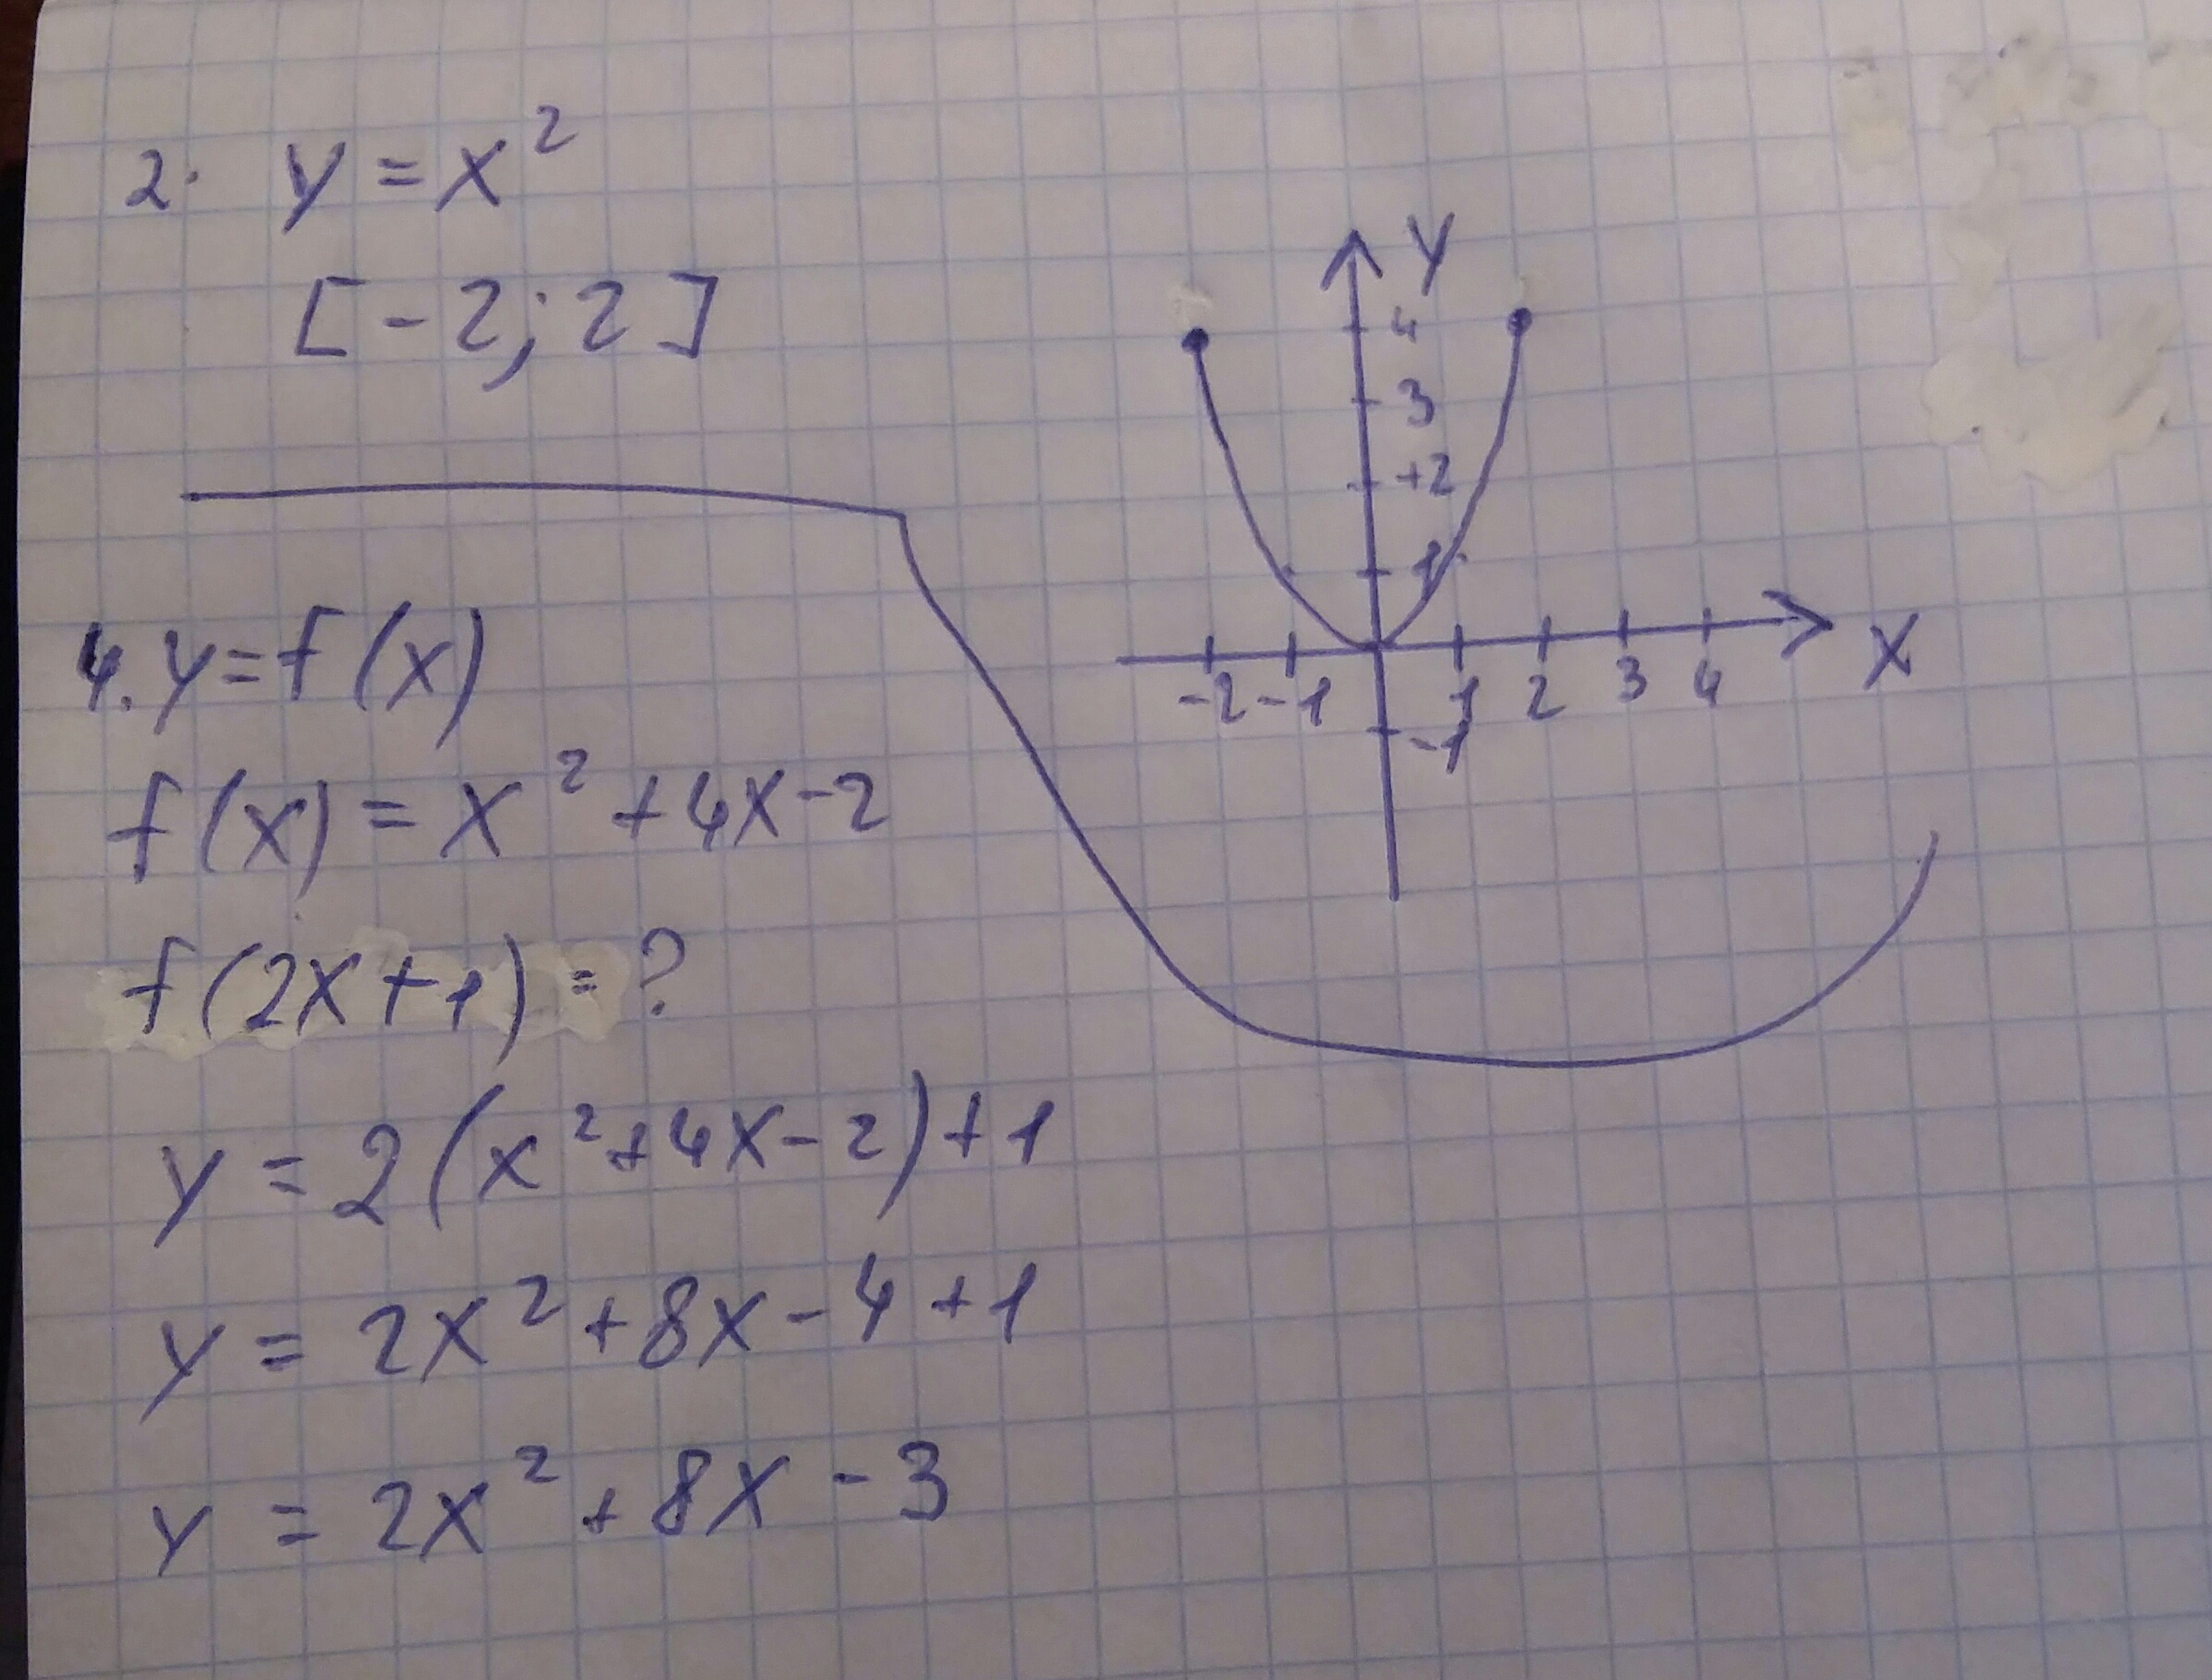 2. y = x²
[-2; 2]
y
4
3
+2
1
-2 -1 1 2 3 4 x
-1
4. y = f(x)
f(x) = x² + 4x - 2
f(2x+1) = ?
y = 2(x² + 4x - 2) + 1
y = 2x² + 8x - 4 + 1
y = 2x² + 8x - 3